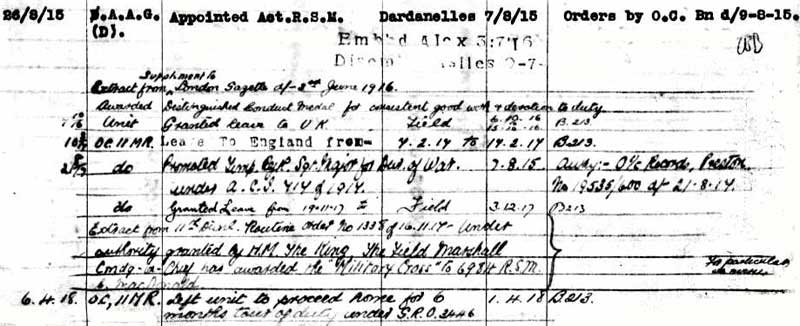 26/8/15 D.A.A.G. Appointed Act.R.S.M. Dardanelles 7/8/15 Orders by O.C. Bn d/9-8-15.
(D).
Emb'd Alex 3:7:16
Disem 9-7-
Supplement to
Extract from London Gazette d/- 2nd June 1916.
Awarded Distinguished Conduct Medal for consistent good work & devotion to duty.
Unit Granted leave to U.K. Field 6.10.16 B.213
15.10.16
OC 11 MR. Leave To England from- 7.2.17 to 17.2.17 B213.
do Promoted Temp Regtl. Sgt Major for Dur. of War. 7.8.15 Auth:- O i/c Records, Preston
under A.C.I. 414 of 1917. No 19535/600 d/- 21-8-17.
do Granted Leave from 19-11-17 to Field 3.12.17 B213
Extract from 11th Divnl. Routine Order No 1338 of 16.11.17- Under
authority granted by H.M. The King, The Field Marshall
Cmdg-in-Chief has awarded the "Military Cross" to 6984 R.S.M.
MacDonald
6.4.18. OC, 11 M.R. Left unit to proceed home for 6 1.4.18 B.213.
months tour of duty under G.R.O. 3446